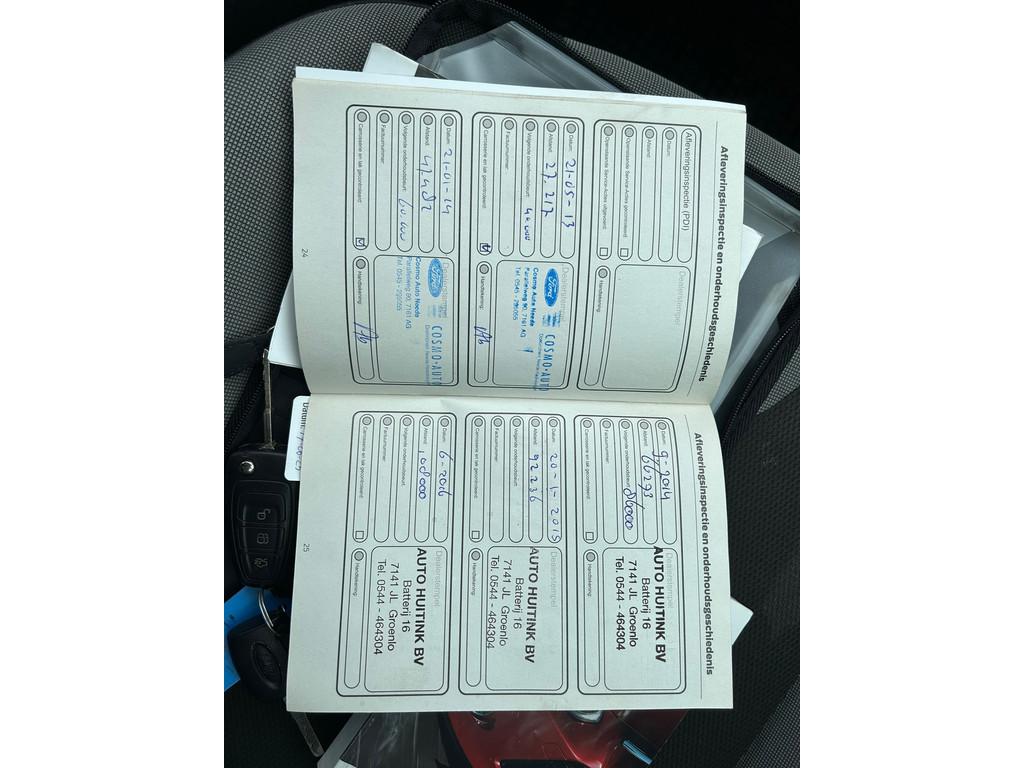 Afleveringsinspectie en onderhoudsgeschiedenis
Afleveringsinspectie (PDI)
Datum:
Afstand:
Openstaande Service-Acties gecontroleerd:
Openstaande Service-Acties uitgevoerd:
Dealerstempel
Handtekening:
Datum: 21-05-13
Afstand: 27.217
Volgende onderhoudsbeurt:
Factuurnummer:
Carrosserie en lak gecontroleerd:
Dealerstempel
Ford COSMO·AUTO
Cosmo Auto Neede
Parallelweg 90, 7161 AG
Handtekening:
Datum: 21-01-14
Afstand: 47.482
Volgende onderhoudsbeurt: 60.000
Factuurnummer:
Carrosserie en lak gecontroleerd:
Dealerstempel
Ford COSMO·AUTO
Cosmo Auto Neede
Parallelweg 90, 7161 AG
Handtekening:
24
Afleveringsinspectie en onderhoudsgeschiedenis
Datum: 9-2014
Afstand: 66293
Volgende onderhoudsbeurt: 86000
Factuurnummer:
Carrosserie en lak gecontroleerd:
Dealerstempel
AUTO HUITINK BV
Batterij 16
7141 JL Groenlo
Tel. 0544 - 464304
Handtekening:
Datum: 20-1-2015
Afstand: 92236
Volgende onderhoudsbeurt:
Factuurnummer:
Carrosserie en lak gecontroleerd:
Dealerstempel
AUTO HUITINK BV
Batterij 16
7141 JL Groenlo
Tel. 0544 - 464304
Handtekening:
Datum: 6-2016
Afstand: 108000
Volgende onderhoudsbeurt:
Factuurnummer:
Carrosserie en lak gecontroleerd:
Dealerstempel
AUTO HUITINK BV
Batterij 16
7141 JL Groenlo
Tel. 0544 - 464304
Handtekening:
25
Datum: